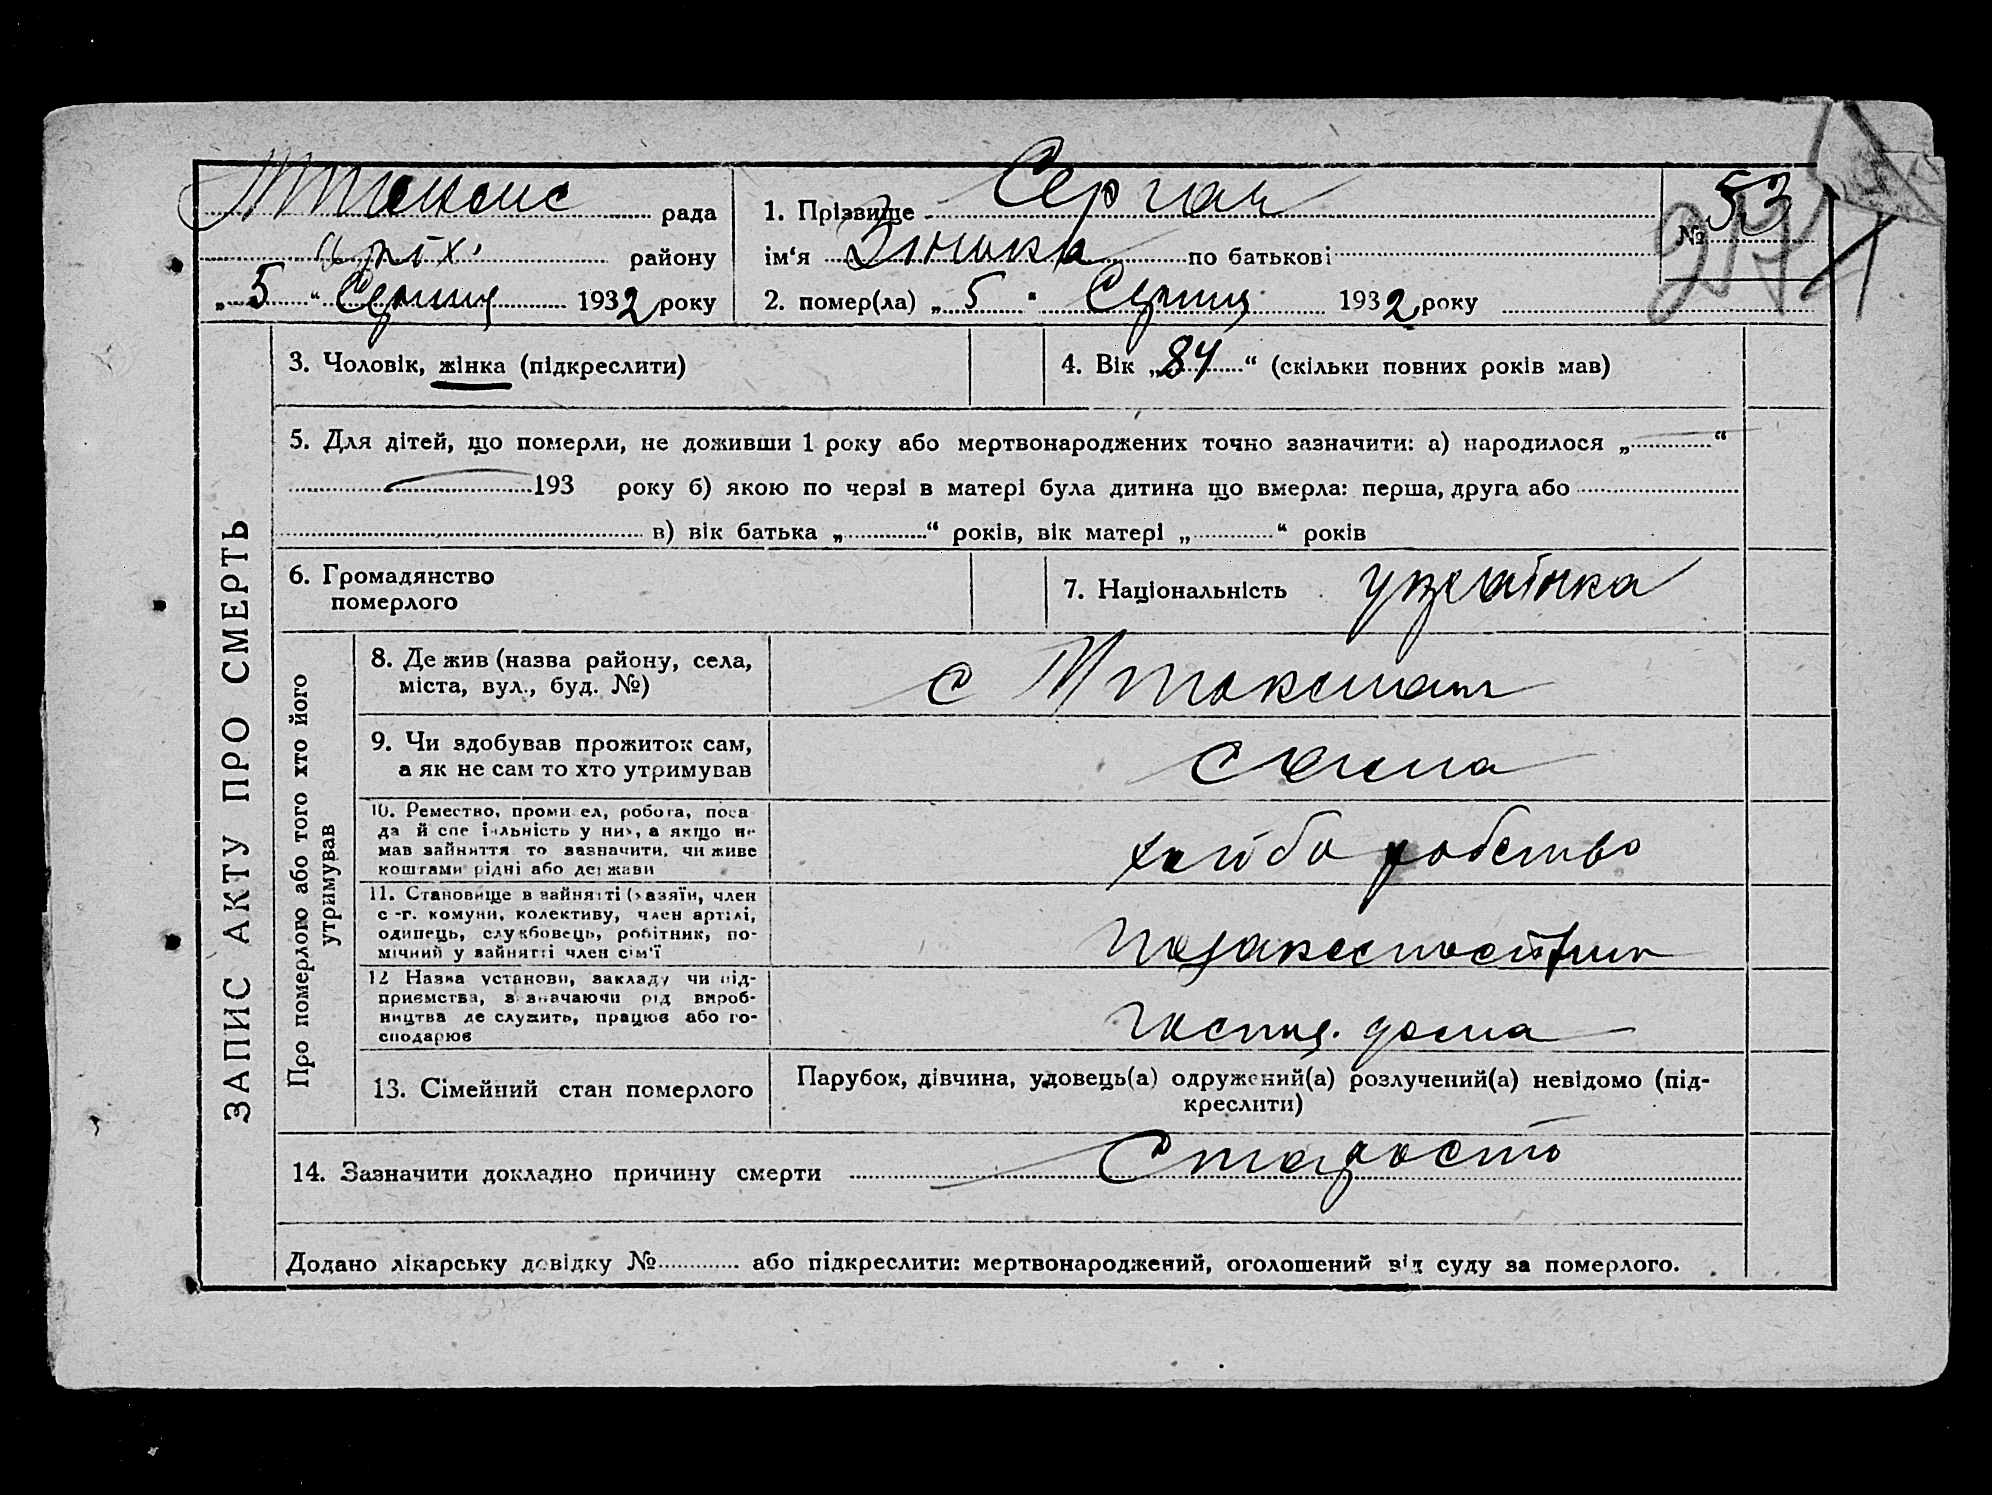 рада
району
„ 5 “ Серпня 1932 року
1. Прізвище Сергап
ім'я по батькові
2. помер(ла) „ 5 “ Серпня 1932 року
№ 53
ЗАПИС АКТУ ПРО СМЕРТЬ
3. Чоловік, жінка (підкреслити)
4. Вік „ 84 “ (скільки повних років мав)
5. Для дітей, що померли, не доживши 1 року або мертвонароджених точно зазначити: а) народилося „ “
193 року б) якою по черзі в матері була дитина що вмерла: перша, друга або
в) вік батька „ “ років, вік матері „ “ років
6. Громадянство
померлого
7. Національність українка
Про померлою або того хто його
утримував
8. Де жив (назва району, села,
міста, вул., буд. №)
с
9. Чи здобував прожиток сам,
а як не сам то хто утримував
сама
10. Ремество, промисел, робота, поса
да й спеціяльність у них, а якщо не
мав зайняття то зазначити, чи живе
коштами рідні або держави
хліборобство
11. Становище в зайнятті (хазяїн, член
с-г. комуни, колективу, член артілі,
одинець, службовець, робітник, по-
мічний у зайнятті член сім'ї
12 Назва установи, закладу чи під-
приємства, зазначаючи рід вироб-
ництва де служить, працює або го-
сподарює
дома
13. Сімейний стан померлого
Парубок, дівчина, удовець(а) одружений(а) розлучений(а) невідомо (під-
креслити)
14. Зазначити докладно причину смерти Старость
Додано лікарську довідку № або підкреслити: мертвонароджений, оголошений від суду за померлого.